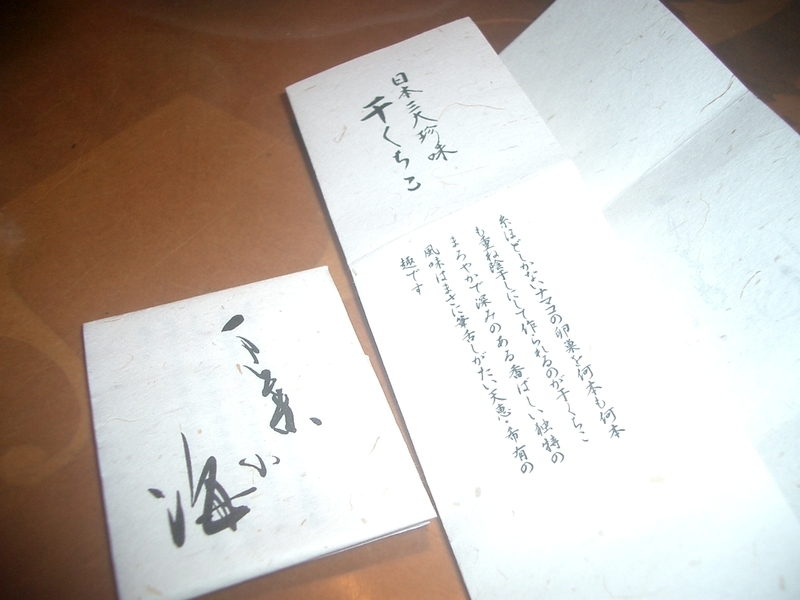 日本三大珍味
干くちこ
糸ほどしかないナマコの卵巣を何本も何本
も重ね陰干しにして作られるのが干くちこ
まろやかで深みのある香ばしい独特の
風味はまさに筆舌しがたい天恵・希有の
趣です
海